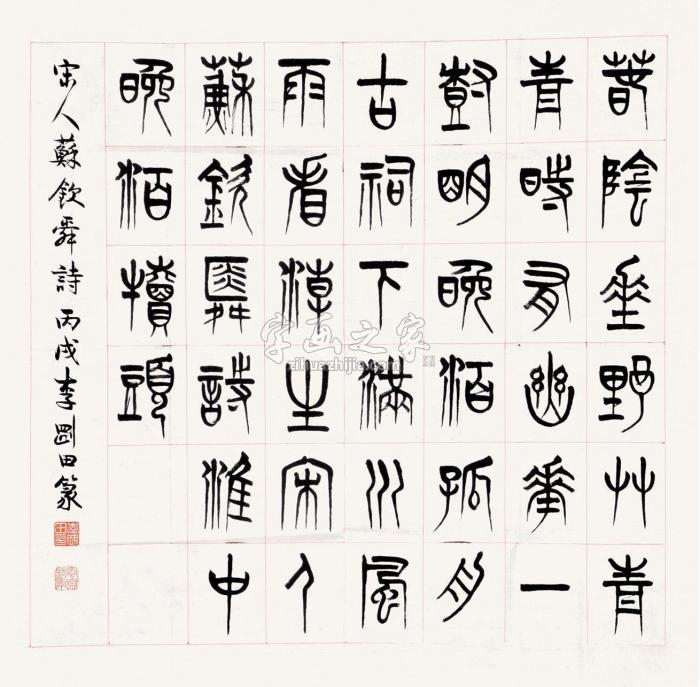 春陰垂野艸青
青時有幽華一
尌明晚泊孤舟
古祠下滿川風
雨看淖生宋人
蘇欽舜詩淮中
晚泊犢頭
宋人蘇欽舜詩丙戌李剛田篆
字画之家
zihuazhijia.com